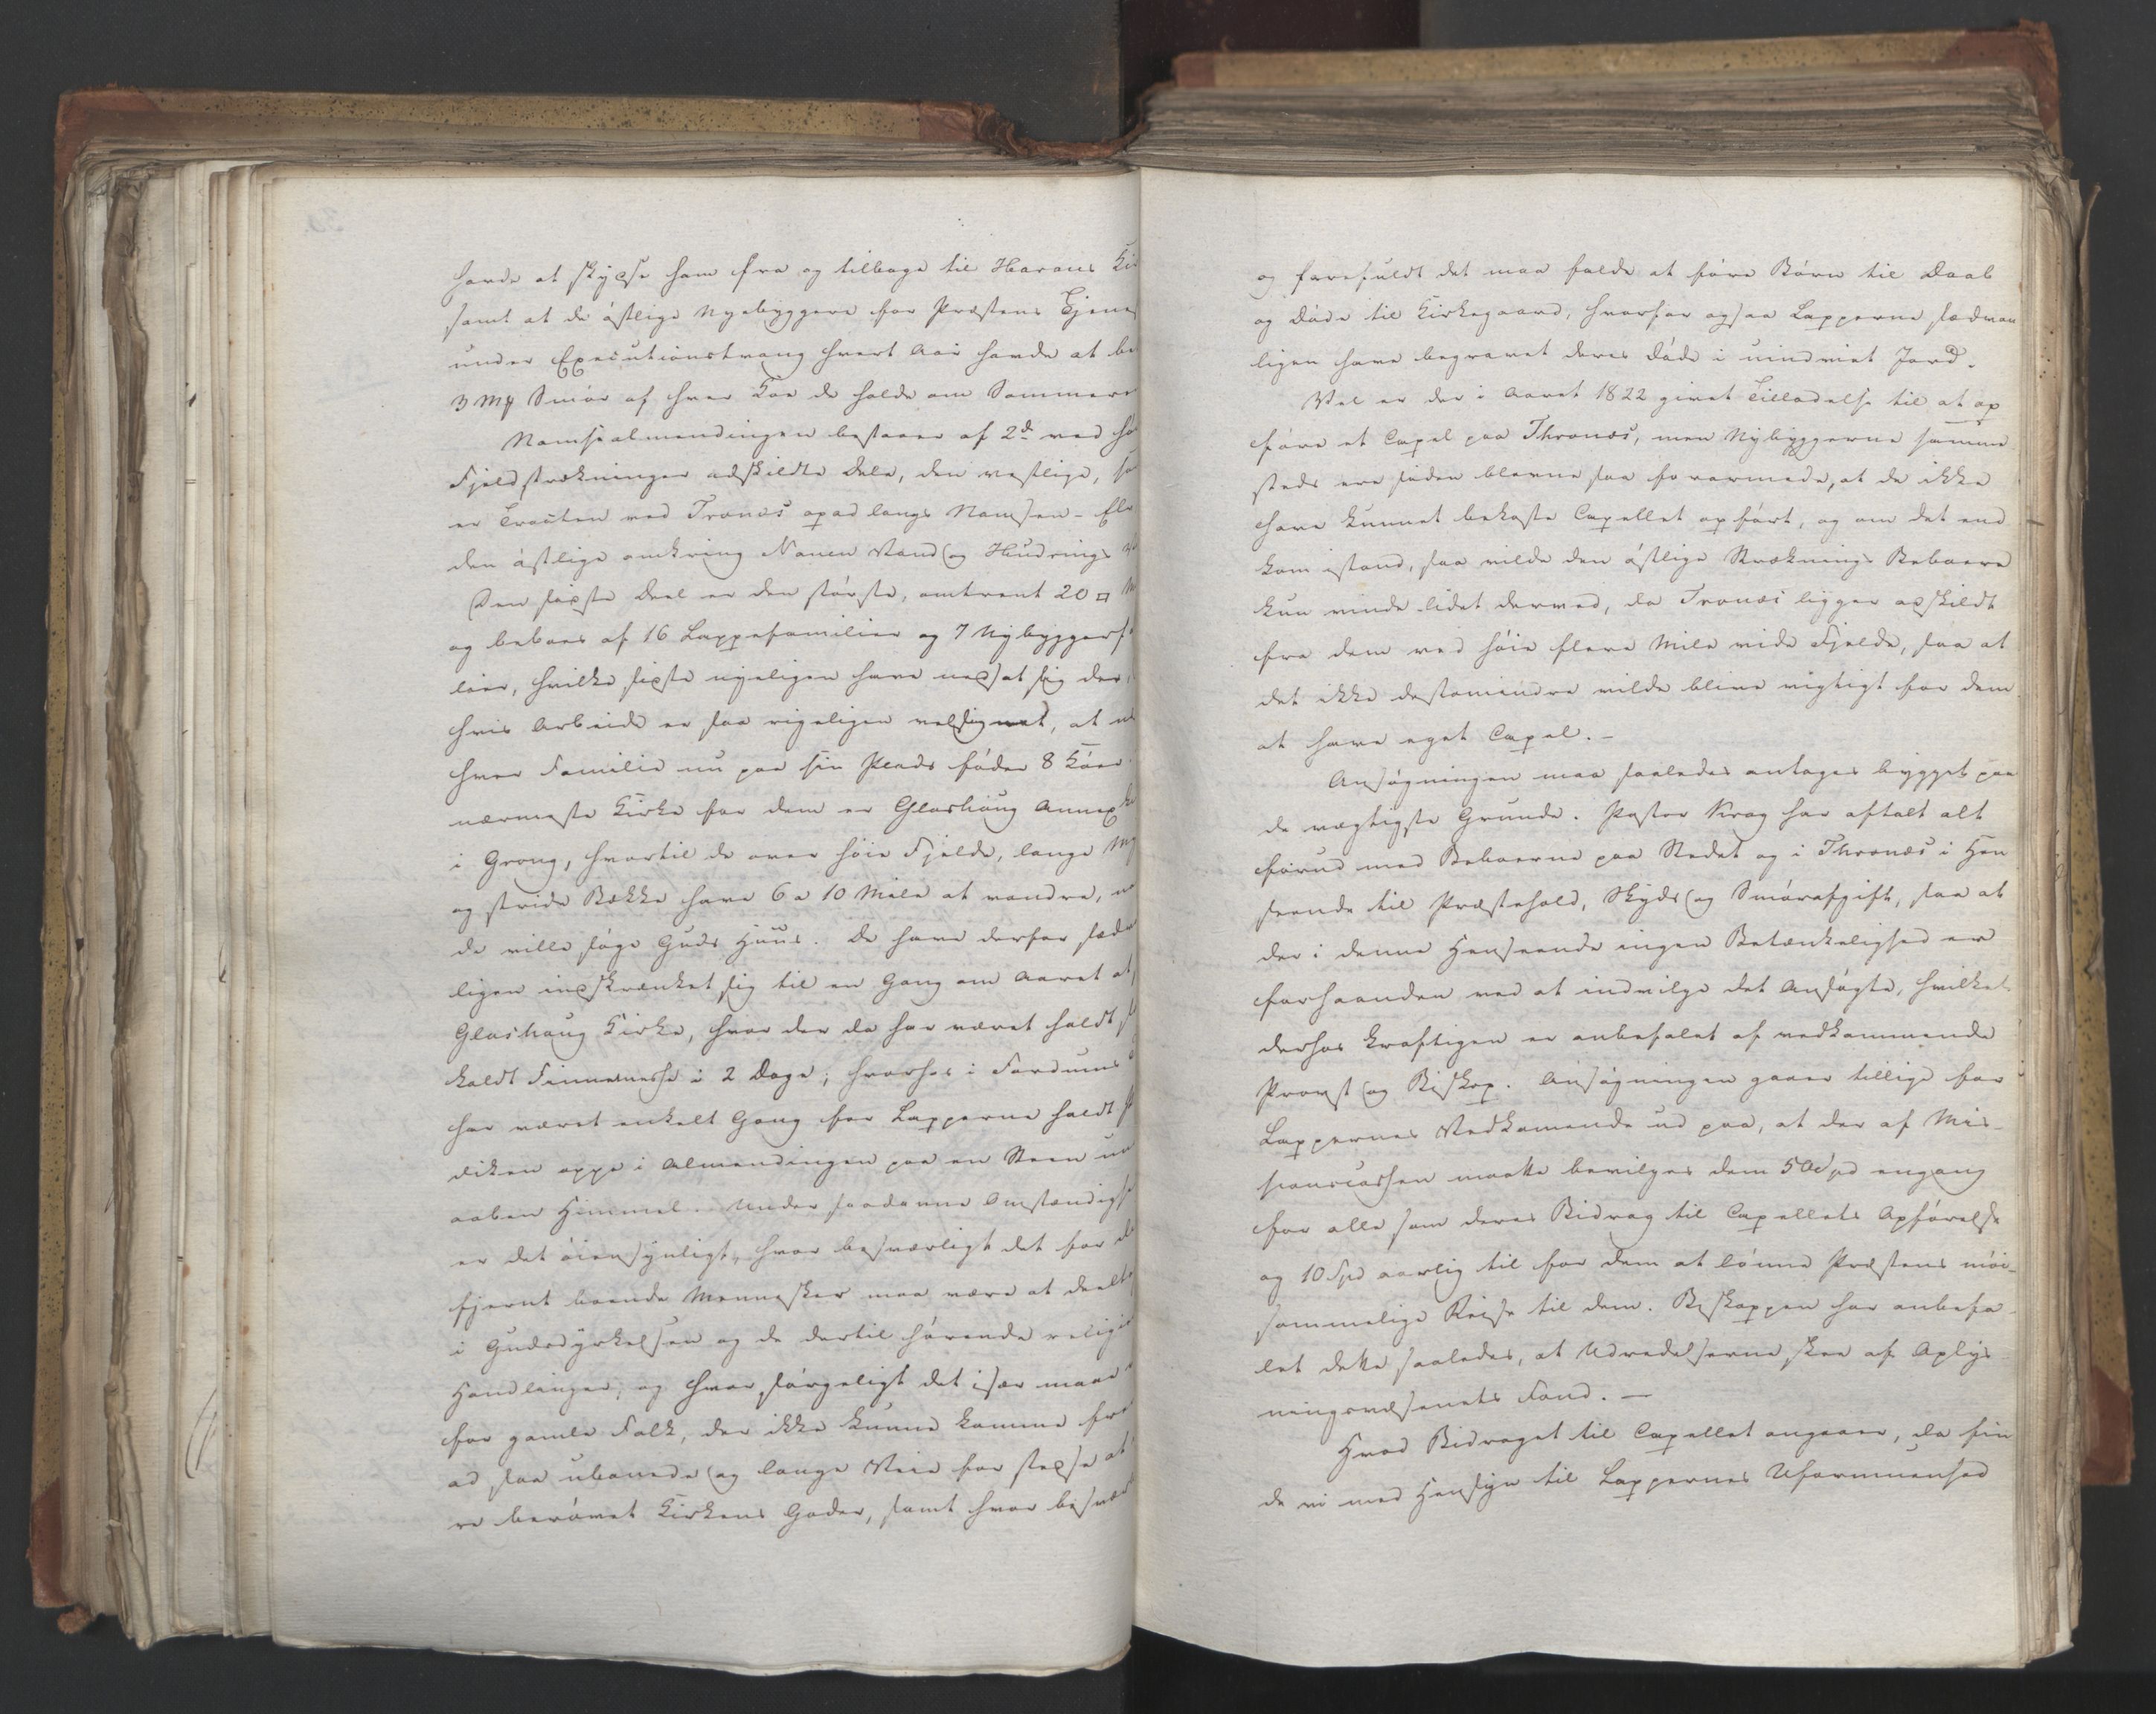 havde at skydse ham fra og tilbage til Harans Kir
samt at de östlige Nyebyggere for Præstens Tjenes
under Executionstvang hvert Aar havde at be
3 Mk Smör af hver Koe de holde om Sommere
Namsealmendingen bestaaer af 2de ved hø
Fjeldstrækninger adskildte Dele, den vestlige, so
er Tracten ved Tronæs opad langs Namsen-Elv
den östlige omkring Nanen Vand og Hudrings
Den sidste Deel er den störste, omtrent 20 □ M
og beboes af 16 Lappefamilier og 7 Nybyggerfa
lier, hvilke sidste nyeligen have nedsat sig der,
hvis Arbeide er saa rigeligen velsignet, at
hver Familie nu paa sin Plads föder 8 Köer
nærmeste Kirke for dem er Gløshaug Annex
i Grong, hvortil de over höie Fjelde, lange My
og stride Bække have 6 a 10 Mile at vandre,
de ville söge Guds Huus. De have derfor sædv
ligen indskrænket sig til en Gang om Aaret at
Gløshaug Kirke, hvor der da har været holdt
kaldt Finnemesse i 2 Dage, hvorhos i Fordums
har været enkelt Gang for Lapperne holdt
diken oppe i Almendingen paa en Steen un
aaben Himmel. Under saadanne Omstændighe
er det öiensynligt, hvor besværligt det for d
fjernt boende Mennesker maa være at deelt
i Gudsdyrkelsen og de dertil hörende religiö
Handlinger, og hvor sörgeligt det især maa
for gamle Folk, der ikke kunne komme frem
ad saa ubanede og lange Veie for stedse at
re berövet Kirkens Goder, samt hvor besvær
og farefuldt det maa falde at före Börn til Daab
og Döde til Kirkegaard, hvorfor ogsaa Lapperne sædvan
ligen have begravet deres Döde i uindviet Jord.
Vel er der i Aaret 1822 givet Tilladelse til at op
före et Capel paa Thronæs, men Nybyggerne samme
steds ere siden blevne saa forarmede, at de ikke
have kunnet bekoste Capellet opfört, og om det end
kom istand, saa vilde den östlige Stræknings Beboere
kun vinde lidet derved, da Tronæs ligger adskildt
fra dem ved höie flere Mile vide Fjelde, saa at
det ikke destomindre vilde blive vigtigt for dem
at have eget Capel. -
Ansögningen maa saaledes antages bygget paa
de vægtigste Grunde. Pastor Krag har aftalt alt
forud med Beboerne paa Stedet og i Thronæs i Hen
seende til Præstehold, Skyds og Smörafgift, saa at
der i denne Henseende ingen Betænkelighed er
forhaanden ved at indvilge det Ansögte, hvilket
derhos kraftigen er anbefalet af vedkommende
Provst og Biskop. Ansögningen gaaer tillige for
Lappernes Vedkomende ud paa, at der af Mis-
sionscassen maatte bevilges dem 50 Spd engang
for alle som deres Bidrag til Capellets Opförelse
og 10 Spd aarlig til for dem at lönne Præstens möi-
sommelige Reise til dem. Biskoppen har anbefa-
let dette saaledes, at Udredelserne skee af Oplys
ningsvæsenets Fond. —
Hvad Bidraget til Capellet angaaer, da fin
de vi med Hensyn til Lappernes Uformuenhed